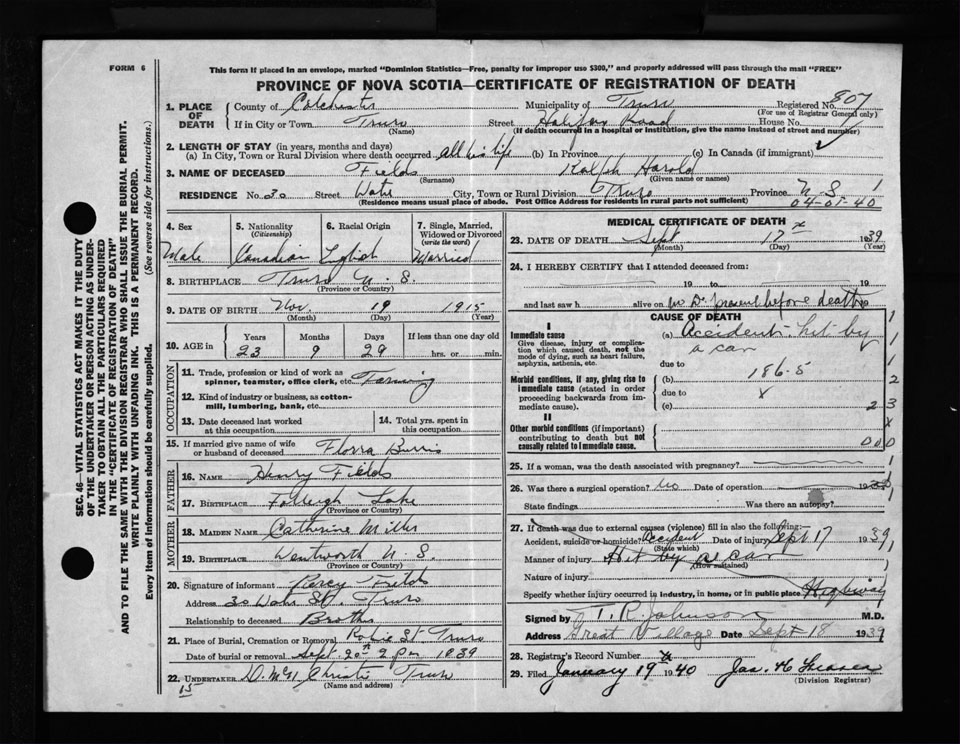 FORM 6
This form if placed in an envelope, marked "Dominion Statistics—Free, penalty for improper use $300," and properly addressed will pass through the mail "FREE"
PROVINCE OF NOVA SCOTIA—CERTIFICATE OF REGISTRATION OF DEATH
SEC. 46—VITAL STATISTICS ACT MAKES IT THE DUTY
OF THE UNDERTAKER OR PERSON ACTING AS UNDER-
TAKER TO OBTAIN ALL THE PARTICULARS REQUIRED
IN THE "CERTIFICATE OF REGISTRATION OF DEATH"
AND TO FILE THE SAME WITH THE DIVISION REGISTRAR WHO SHALL ISSUE THE BURIAL PERMIT.
WRITE PLAINLY WITH UNFADING INK. THIS IS A PERMANENT RECORD.
Every item of information should be carefully supplied. (See reverse side for instructions.)
1. PLACE OF DEATH County of Colchester Municipality of Truro Registered No. 807
(For use of Registrar General only)
If in City or Town Truro Street Halifax Road House No.
(Name) (If death occurred in a hospital or institution, give the name instead of street and number)
2. LENGTH OF STAY (in years, months and days)
(a) In City, Town or Rural Division where death occurred all his life (b) In Province (c) In Canada (if immigrant)
3. NAME OF DECEASED Fields Ralph Harold
(Surname) (Given name or names)
RESIDENCE No. 30 Street City, Town or Rural Division Truro Province N S 1
(Residence means usual place of abode. Post Office Address for residents in rural parts not sufficient) 04-01-40
4. Sex 5. Nationality (Citizenship) 6. Racial Origin 7. Single, Married, Widowed or Divorced (write the word)
Male Canadian English Married
8. BIRTHPLACE Truro N. S.
(Province or Country)
9. DATE OF BIRTH Nov. 19 1915
(Month) (Day) (Year)
10. AGE in Years Months Days If less than one day old
23 9 29 hrs. or min.
OCCUPATION
11. Trade, profession or kind of work as spinner, teamster, office clerk, etc. Farming
12. Kind of industry or business, as cotton-mill, lumbering, bank, etc.
13. Date deceased last worked at this occupation 14. Total yrs. spent in this occupation
15. If married give name of wife or husband of deceased Florra Burris
FATHER
16. NAME Henry Fields
17. BIRTHPLACE Folleigh Lake
(Province or Country)
MOTHER
18. MAIDEN NAME Catherine Miller
19. BIRTHPLACE Wentworth N. S.
(Province or Country)
20. Signature of informant Percy Fields
Address 30 St. Truro
Relationship to deceased Brother
21. Place of Burial, Cremation or Removal Robie St Truro
Date of burial or removal Sept. 20th 2 pm 1939
22. UNDERTAKER Christie Truro
(Name and address)
15
MEDICAL CERTIFICATE OF DEATH
23. DATE OF DEATH Sept 17 1939
(Month) (Day) (Year)
24. I HEREBY CERTIFY that I attended deceased from:
19 to 19
and last saw h alive on no Dr. present before death 19
CAUSE OF DEATH
I
Immediate cause (a) Accident, hit by
Give disease, injury or complication which caused death, not the mode of dying, such as heart failure, asphyxia, asthenia, etc. a car
due to
Morbid conditions, if any, giving rise to immediate cause (stated in order proceeding backwards from immediate cause). (b) 186-5
due to x
(c) 2 3
II
Other morbid conditions (if important) contributing to death but not causally related to immediate cause. 000
25. If a woman, was the death associated with pregnancy?
26. Was there a surgical operation? No Date of operation 19
State findings Was there an autopsy?
27. If death was due to external causes (violence) fill in also the following:
Accident, suicide or homicide? Accident Date of injury Sept 17 1939
(State which)
Manner of injury Hit by a car
(How sustained)
Nature of injury
Specify whether injury occurred in industry, in home, or in public place Highway
Signed by T. R. Johnson M.D.
Address Great Village Date Sept 18 1939
28. Registrar's Record Number
29. Filed January 19 1940 Jas. H.
(Division Registrar)